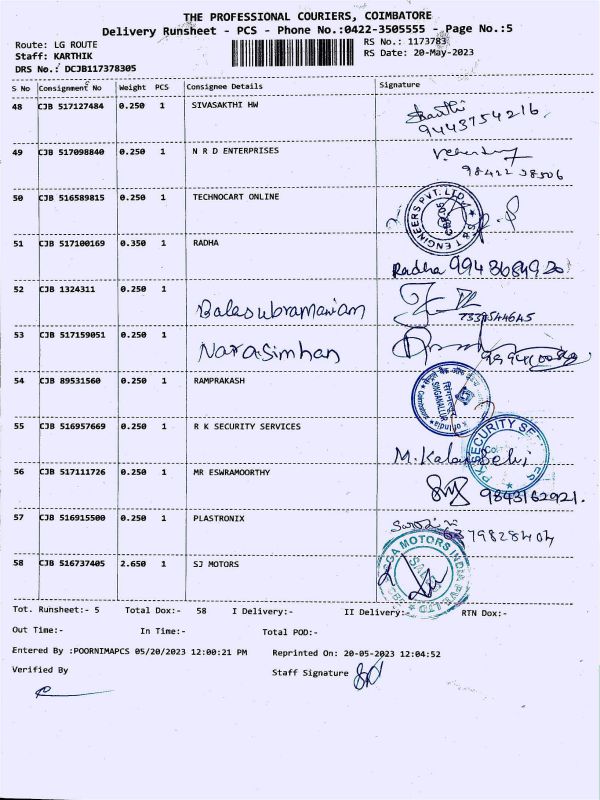 THE PROFESSIONAL COURIERS, COIMBATORE
Delivery Runsheet - PCS - Phone No.:0422-3505555 - Page No.:5
Route: LG ROUTE RS No.: 1173783
Staff: KARTHIK RS Date: 20-May-2023
DRS No.: DCJB117378305
S No Consignment No Weight PCS Consignee Details Signature
48 CJB 517127484 0.250 1 SIVASAKTHI HW
9443754216.
49 CJB 517098840 0.250 1 N R D ENTERPRISES
50 CJB 516589815 0.250 1 TECHNOCART ONLINE
ENGINEERS PVT. LTD
51 CJB 517100169 0.350 1 RADHA
Radha
52 CJB 1324311 0.250 1
Balasubramaniam
53 CJB 517159051 0.250 1
Narasimhan
54 CJB 89531560 0.250 1 RAMPRAKASH
SINGANALLUR
55 CJB 516957669 0.250 1 R K SECURITY SERVICES
SECURITY
56 CJB 517111726 0.250 1 MR ESWRAMOORTHY
9843162921.
57 CJB 516915500 0.250 1 PLASTRONIX
58 CJB 516737405 2.650 1 SJ MOTORS
MOTORS INDIA PVT LTD
Tot. Runsheet:- 5 Total Dox:- 58 I Delivery:- II Delivery:- RTN Dox:-
Out Time:- In Time:- Total POD:-
Entered By :POORNIMAPCS 05/20/2023 12:00:21 PM Reprinted On: 20-05-2023 12:04:52
Verified By Staff Signature